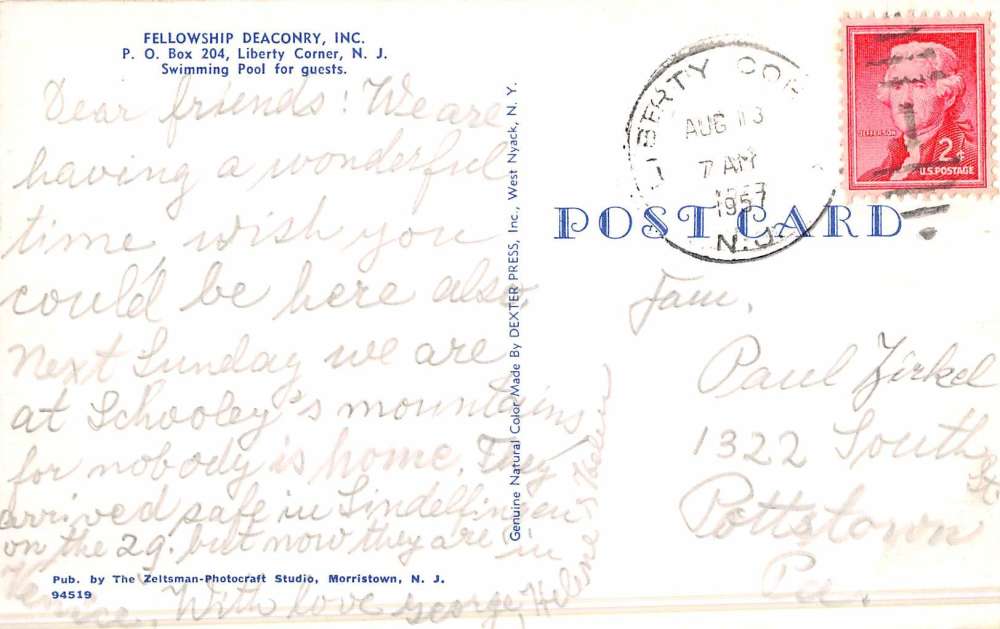 FELLOWSHIP DEACONRY, INC.
P. O. Box 204, Liberty Corner, N. J.
Swimming Pool for guests.
Dear friends! We are
having a wonderful
time, wish you
could be here also,
Next Sunday we are
at Schooley's mountains
for nobody is home. They
arrived safe in Sindelfingen
on the 29. but now they are in
Venice. With love George, Helene &
Pub. by The Zeltsman-Photocraft Studio, Morristown, N. J.
94519
Genuine Natural Color Made By DEXTER PRESS, Inc., West Nyack, N. Y.
LIBERTY COR
AUG 13
7 AM
1957
N.J.
JEFFERSON
2¢
U.S. POSTAGE
POST CARD
Fam.
Paul Zirkel
1322 South
St.
Pottstown
Pa.